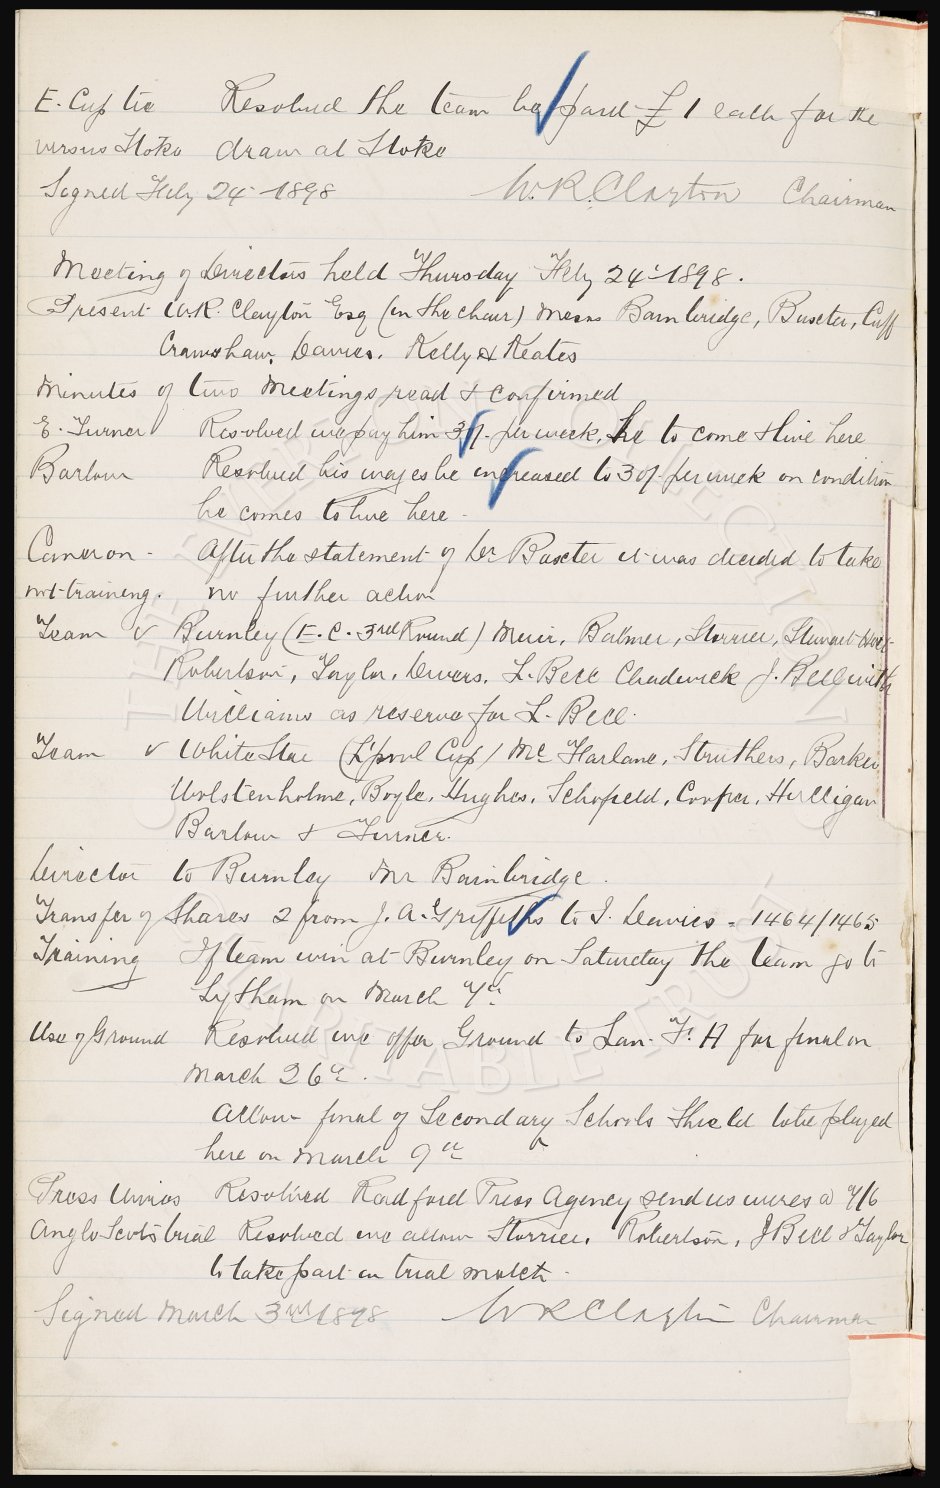 E. Cup tie Resolved the team be paid £1 each for the
versus Stoke draw at Stoke
Signed Feby 24th 1898 W. R. Clayton Chairman
Meeting of Directors held Thursday Feby 24th 1898.
Present W.R. Clayton Esq (in the chair) Messrs Bainbridge, Baxter, Cuff
Crawshaw, Davies, Kelly & Keates
Minutes of two Meetings read & confirmed
E. Turner Resolved we pay him 30/- per week, he to come & live here
Barlow Resolved his wages be increased to 30/- per week on condition
he comes to live here.
Cameron - After the statement of Dr Baxter it was decided to take
not training. no further action
Team v Burnley (E.C. 3rd Round) Muir, Balmer, Storrier, Stewart
Robertson, Taylor, Divers, L. Bell Chadwick J. Bell with
Williams as reserve for L. Bell.
Team v White Star (L'pool Cup) Mc Farlane, Struthers, Barker
Wolstenholme, Boyle, Hughes, Schofield, Cooper, Hulligan
Barlow & Turner.
Director to Burnley Mr Bainbridge.
Transfer of Shares 2 from J. A. Griffiths to I. Davies - 1464/1465
Training If team win at Burnley on Saturday the team go to
Lytham on March 7th.
Use of Ground Resolved we offer Ground to Lan. F. A for final on
March 26th.
Allow final of Secondary Schools Shield to be played
here on March 9th
Press Wires Resolved Radford Press Agency send us wires @ 7/6
Anglo Scots trial Resolved we allow Storrier, Robertson, J Bell & Taylor
to take part in trial match.
Signed March 3rd 1898 W R Clayton Chairman
THE EVERTON COLLECTION
CHARITABLE TRUST